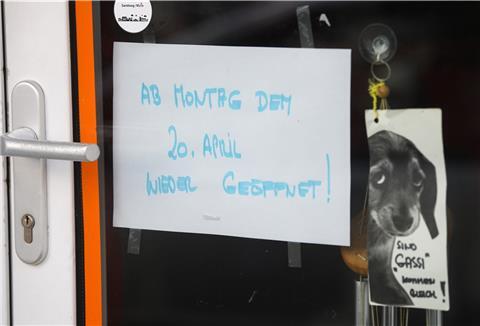 AB MONTAG DEM
20. APRIL
WIEDER GEÖFFNET!
SIND
"GASSI"
KOMMEN
GLEICH!